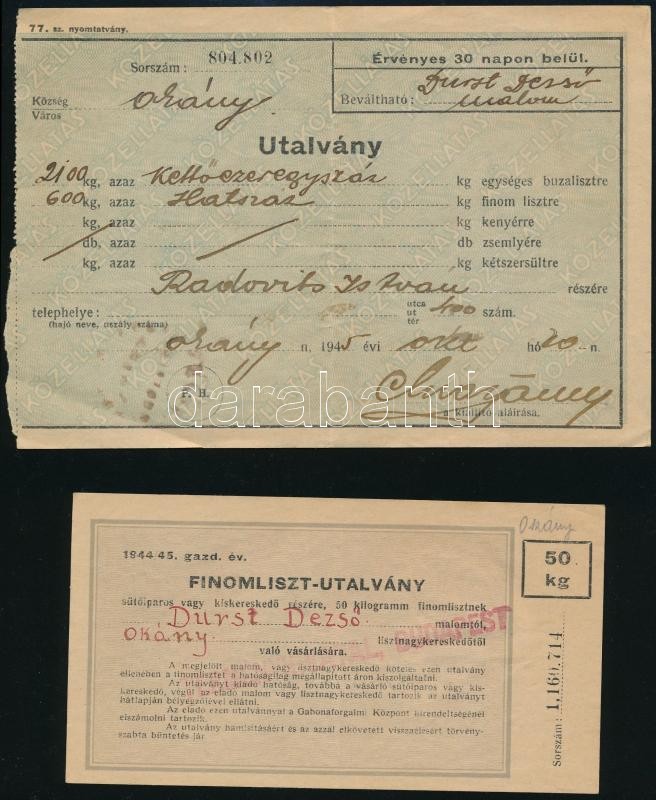 77. sz. nyomtatvány.
Sorszám: 804.802
Érvényes 30 napon belül.
Község
Város
Okány
Durst Dezső
Beváltható: malom
Utalvány
2100 kg, azaz Kettőezeregyszáz kg egységes buzalisztre
600 kg, azaz Hatszáz kg finom lisztre
kg, azaz kg kenyérre
db, azaz db zsemlyére
kg, azaz kg kétszersültre
Radovits István részére
telephelye: utca ut tér 400 szám.
(hajó neve, uszály száma)
Okány n, 1945 évi okt hó 20 n.
P. H.
a kiállító aláirása.
darabanth
Okány
1944-45. gazd. év.
50
kg
FINOMLISZT-UTALVÁNY
sütőiparos vagy kiskereskedő részére, 50 kilogramm finomlisztnek
Durst Dezső malomtól,
Okány lisztnagykereskedőtől
BUDAPEST
való vásárlására.
A megjelölt malom, vagy lisztnagykereskedő köteles ezen utalvány
ellenében a finomlisztet a hatóságilag megállapított áron kiszolgáltatni.
Az utalványt kiadó hatóság, továbbá a vásárló sütőiparos vagy kis-
kereskedő, végül az eladó malom vagy lisztnagykereskedő tartozik az utalványt
hátlapján bélyegzőjével ellátni.
Az eladó ezen utalvánnyal a Gabonaforgalmi Központ kirendeltségénél
elszámolni tartozik.
Az utalvány hamisításáért és az azzal elkövetett visszaélésért törvény-
szabta büntetés jár.
Sorszám: 1,160.714